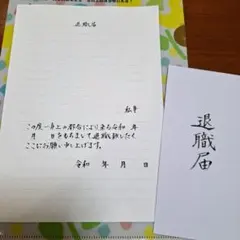 退職届
私事
この度一身上の都合により来る令和　年
月　日をもちまして退職致したく
ここにお願い申し上げます。
令和　年　月　日
退職届